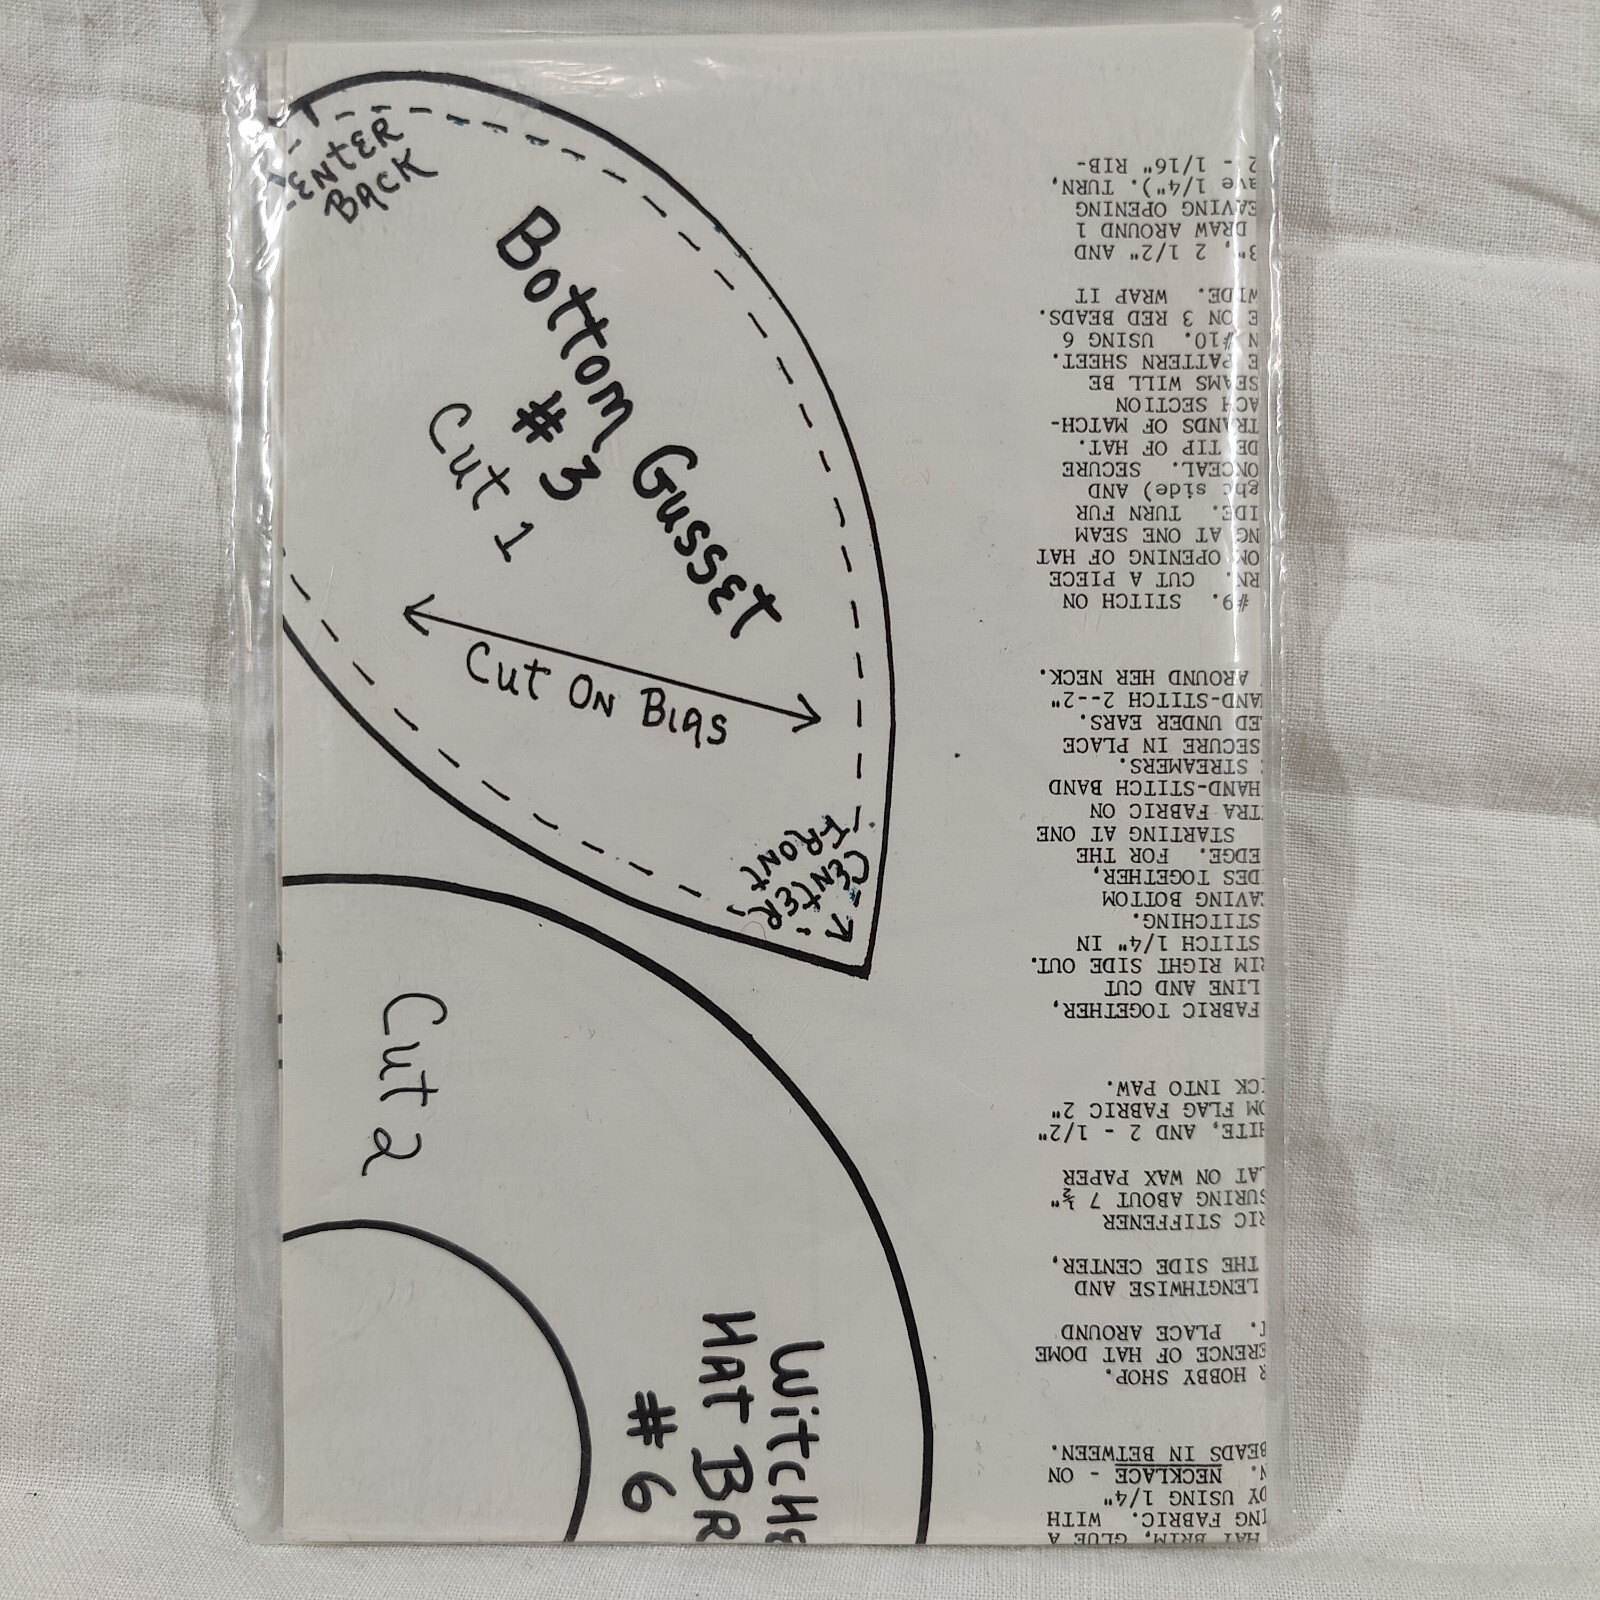 CENTER
BACK
Bottom Gusset
#3
Cut 1
Cut On Bias
CENTER
FRONT
Cut 2
Witche
Hat Br
#6
HAT BRIM, GLUE A
ING FABRIC. WITH
DY USING 1/4"
N. NECKLACE - ON
BEADS IN BETWEEN.
R HOBBY SHOP.
ERENCE OF HAT DOME
T. PLACE AROUND
LENGTHWISE AND
THE SIDE CENTER,
RIC STIFFENER
SURING ABOUT 7 ½"
LAT ON WAX PAPER
HITE, AND 2 - 1/2"
OM FLAG FABRIC 2"
ICK INTO PAW.
FABRIC TOGETHER,
LINE AND CUT
RIM RIGHT SIDE OUT.
STITCH 1/4" IN
STITCHING.
AVING BOTTOM
DES TOGETHER,
EDGE. FOR THE
STARTING AT ONE
TRA FABRIC ON
HAND-STITCH BAND
STREAMERS.
SECURE IN PLACE
ED UNDER EARS.
AND-STITCH 2--2"
AROUND HER NECK.
#9. STITCH ON
RN. CUT A PIECE
OM OPENING OF HAT
NG AT ONE SEAM
IDE. TURN FUR
ght side) AND
ONCEAL. SECURE
DE TIP OF HAT.
TRANDS OF MATCH-
ACH SECTION
SEAMS WILL BE
E PATTERN SHEET.
N #10. USING 6
E ON 3 RED BEADS.
WIDE. WRAP IT
3", 2 1/2" AND
DRAW AROUND 1
EAVING OPENING
ave 1/4"). TURN,
2 - 1/16" RIB-